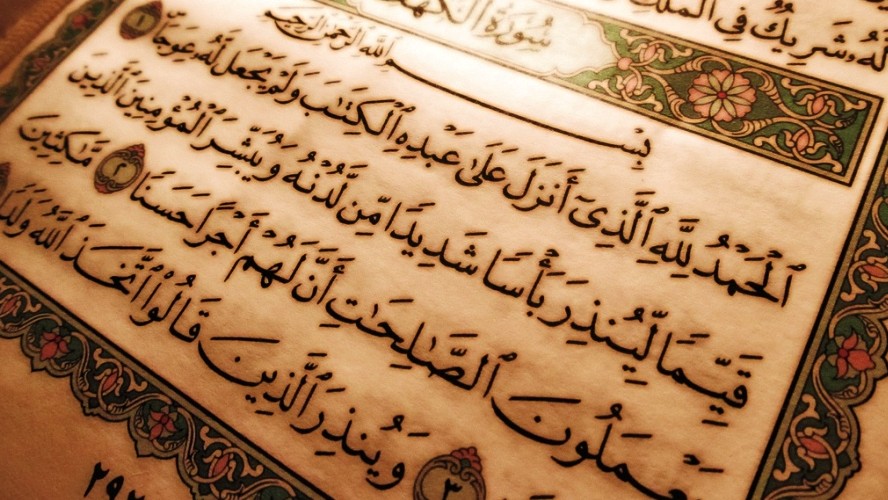 لَّهُۥ شَرِيكٌ فِى ٱلْمُلْكِ
سُورَةُ الْكَهْفِ
بِسْمِ ٱللَّهِ ٱلرَّحْمَٰنِ ٱلرَّحِيمِ
ٱلْحَمْدُ لِلَّهِ ٱلَّذِىٓ أَنزَلَ عَلَىٰ عَبْدِهِ ٱلْكِتَٰبَ وَلَمْ يَجْعَل لَّهُۥ عِوَجَاۜ ١
قَيِّمًا لِّيُنذِرَ بَأْسًا شَدِيدًا مِّن لَّدُنْهُ وَيُبَشِّرَ ٱلْمُؤْمِنِينَ ٱلَّذِينَ
يَعْمَلُونَ ٱلصَّٰلِحَٰتِ أَنَّ لَهُمْ أَجْرًا حَسَنًا ٢ مَّٰكِثِينَ
٣ وَيُنذِرَ ٱلَّذِينَ قَالُوا۟ ٱتَّخَذَ ٱللَّهُ وَلَدًا